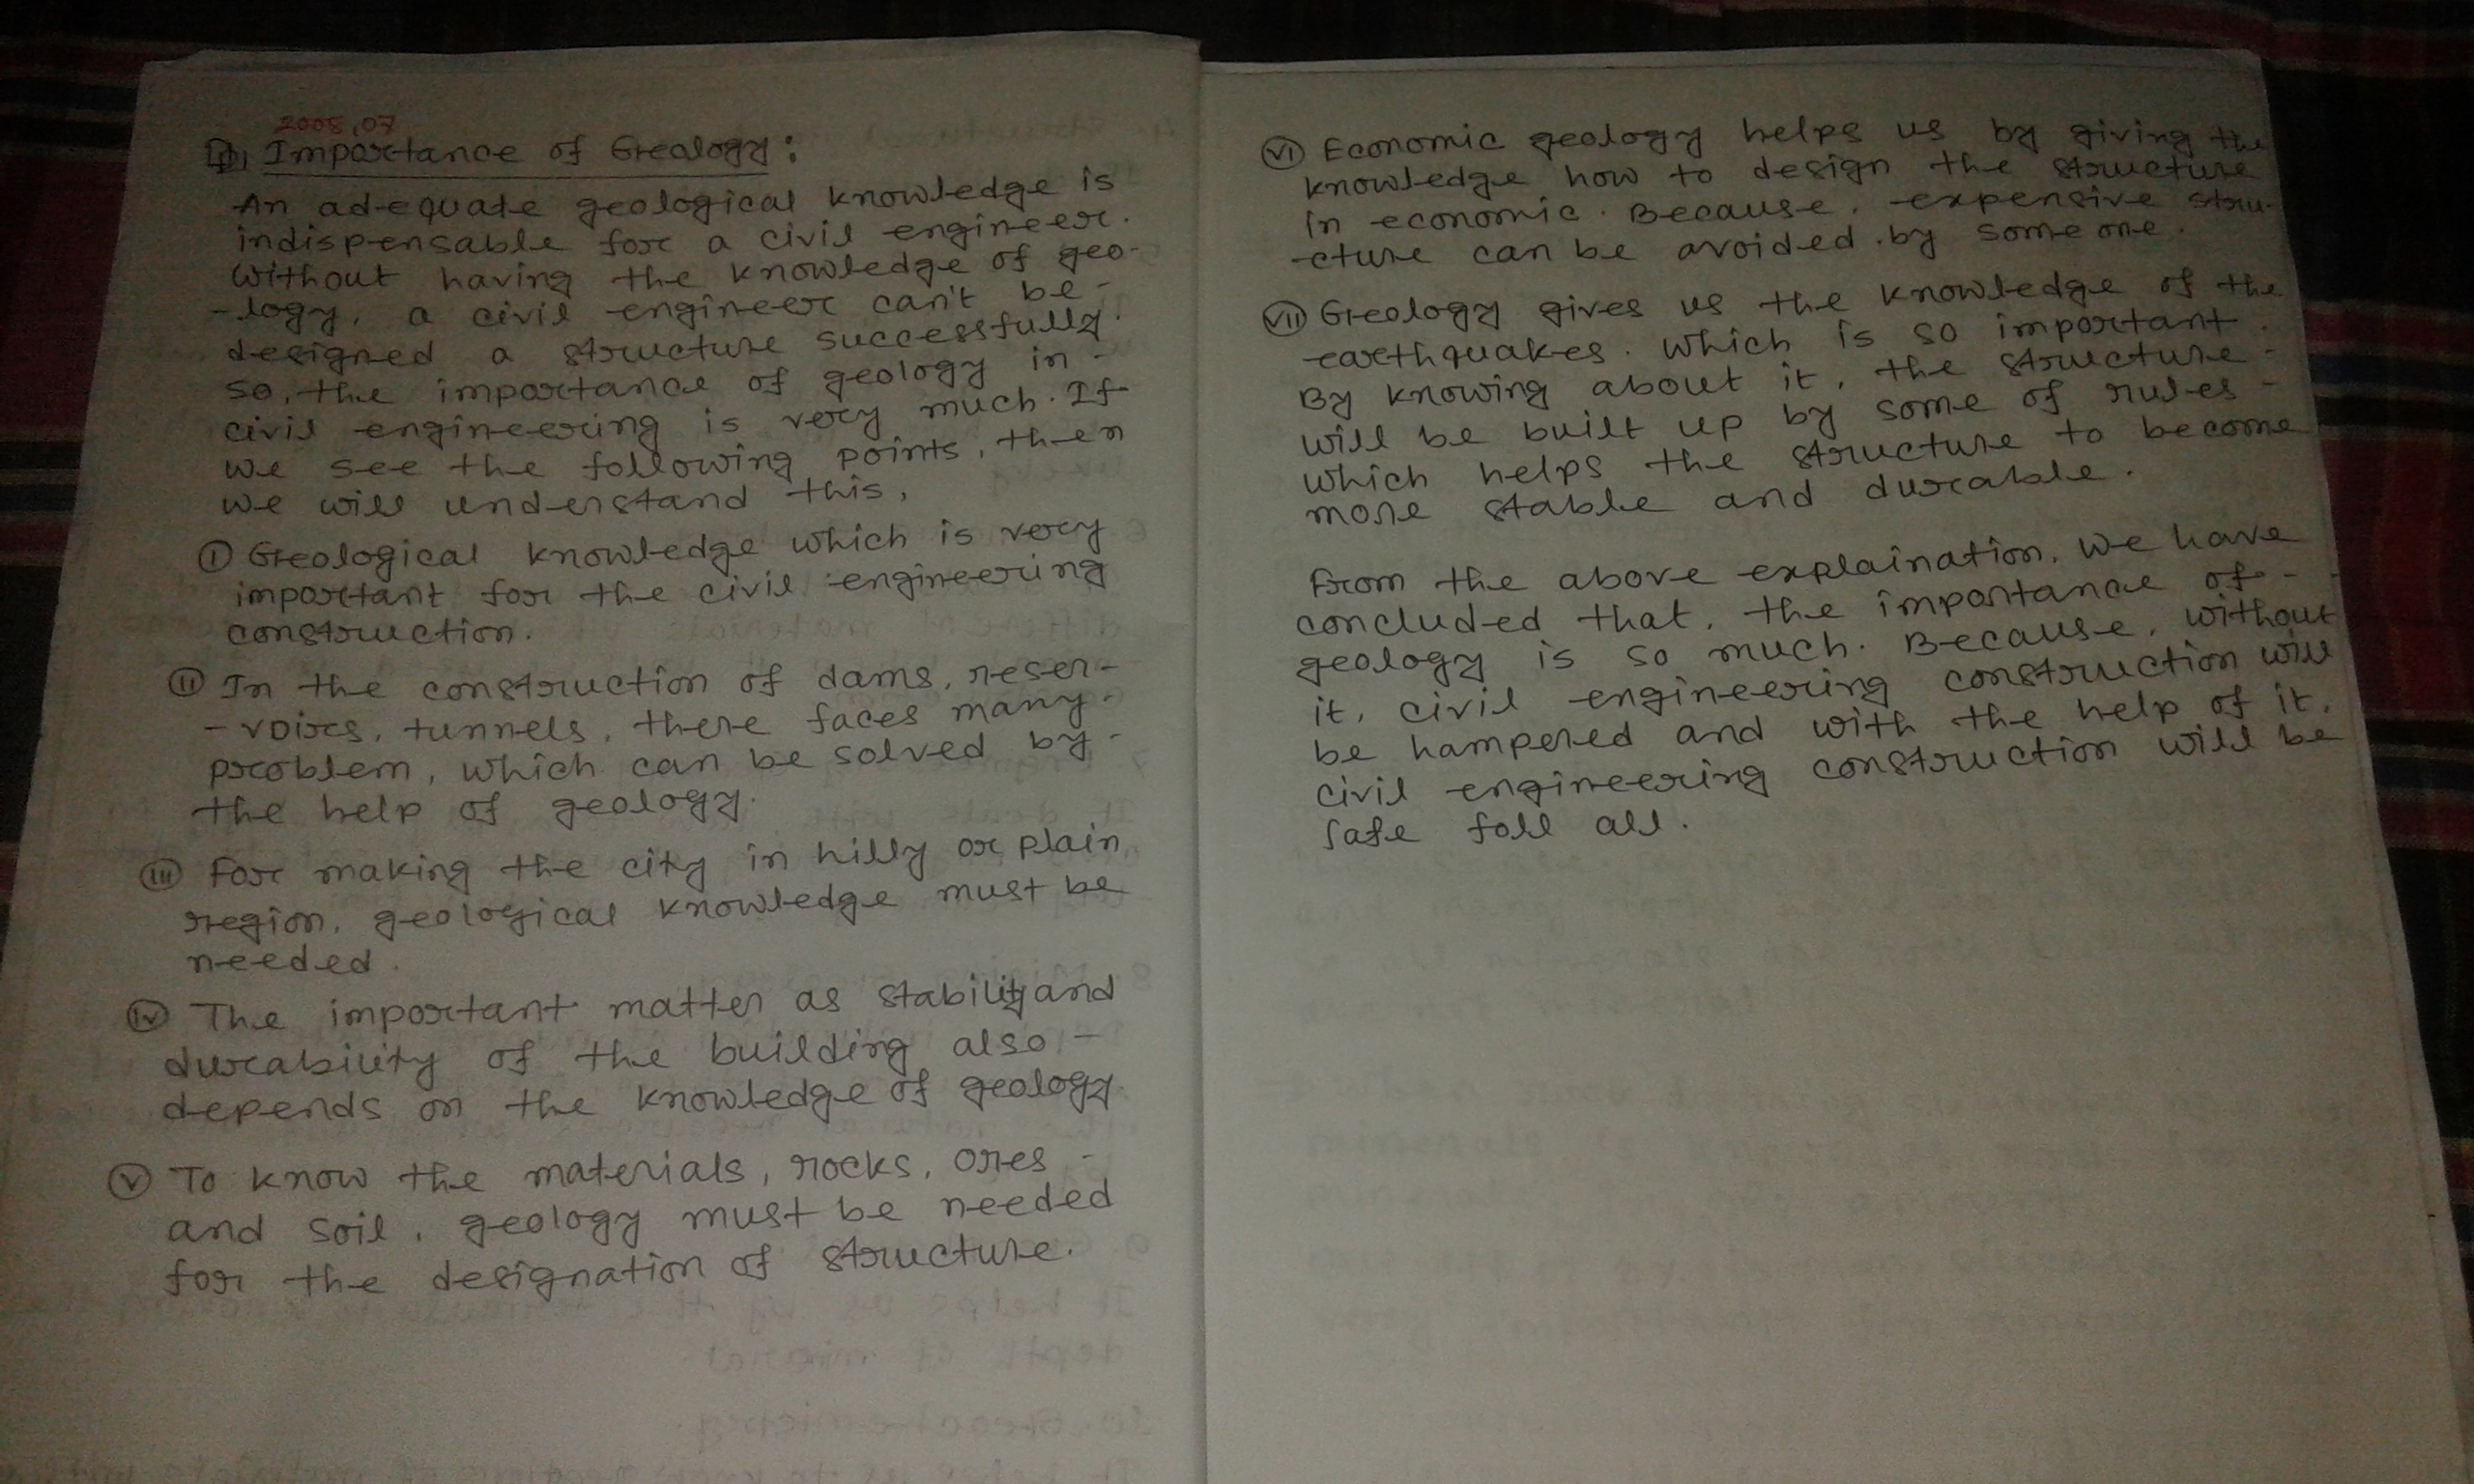 2008,07
Importance of Geology:
An adequate geological knowledge is
indispensable for a civil engineer.
without having the knowledge of geo-
-logy, a civil engineer can't be-
designed a structure successfully.
so, the importance of geology in-
civil engineering is very much. If
we see the following points, then
we will understand this,
(i) Geological knowledge which is very
important for the civil engineering
construction.
(ii) In the construction of dams, reser-
-voirs, tunnels, there faces many-
problem, which can be solved by-
the help of geology.
(iii) For making the city in hilly or plain
region, geological knowledge must be
needed.
(iv) The important matter as stability and
durability of the building also-
depends on the knowledge of geology.
(v) To know the materials, rocks, ores-
and soil, geology must be needed
for the designation of structure.
(vi) Economic geology helps us by giving the
knowledge how to design the structure
in economic. Because, expensive stru-
-cture can be avoided by some one.
(vii) Geology gives us the knowledge of the
earthquakes. Which is so important.
By knowing about it, the structure-
will be built up by some of rules-
which helps the structure to become
more stable and durable.
From the above explaination, we have
concluded that, the importance of-
geology is so much. Because, without
it, civil engineering construction will
be hampered and with the help of it,
civil engineering construction will be
safe foll all.